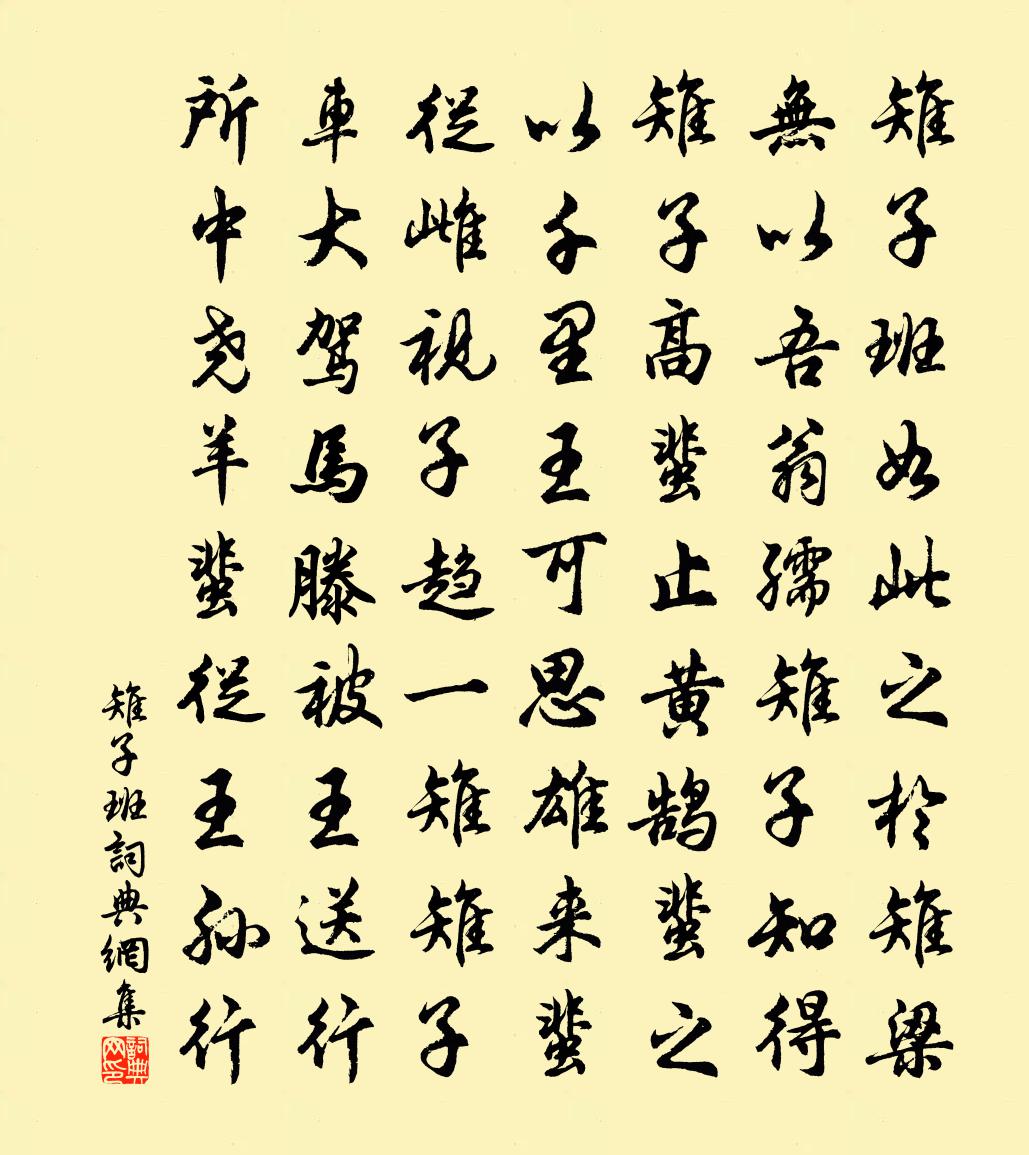 雉子班如此之於雉梁
無以吾翁孺雉子知得
雉子高蜚止黄鵠蜚之
以千里王可思雄来蜚
從雌視子趨一雉雉子
車大駕馬滕被王送行
所中尧羊蜚從王孫行
雉子班詞典網集
詞典网印